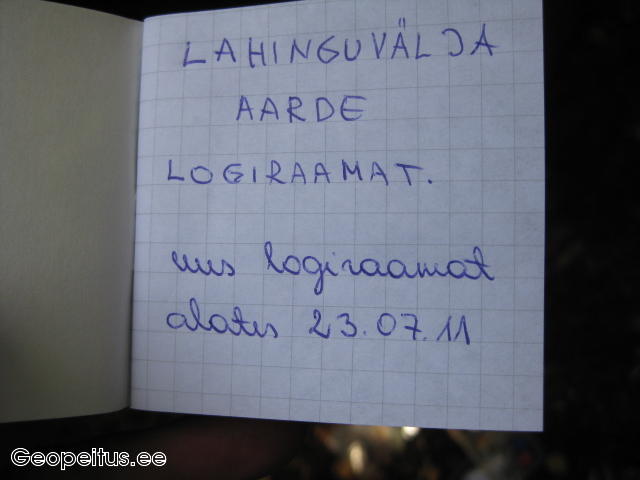 LAHINGUVÄLJA
AARDE
LOGIRAAMAT.
uus logiraamat
alates 23.07.11
Geopeitus.ee